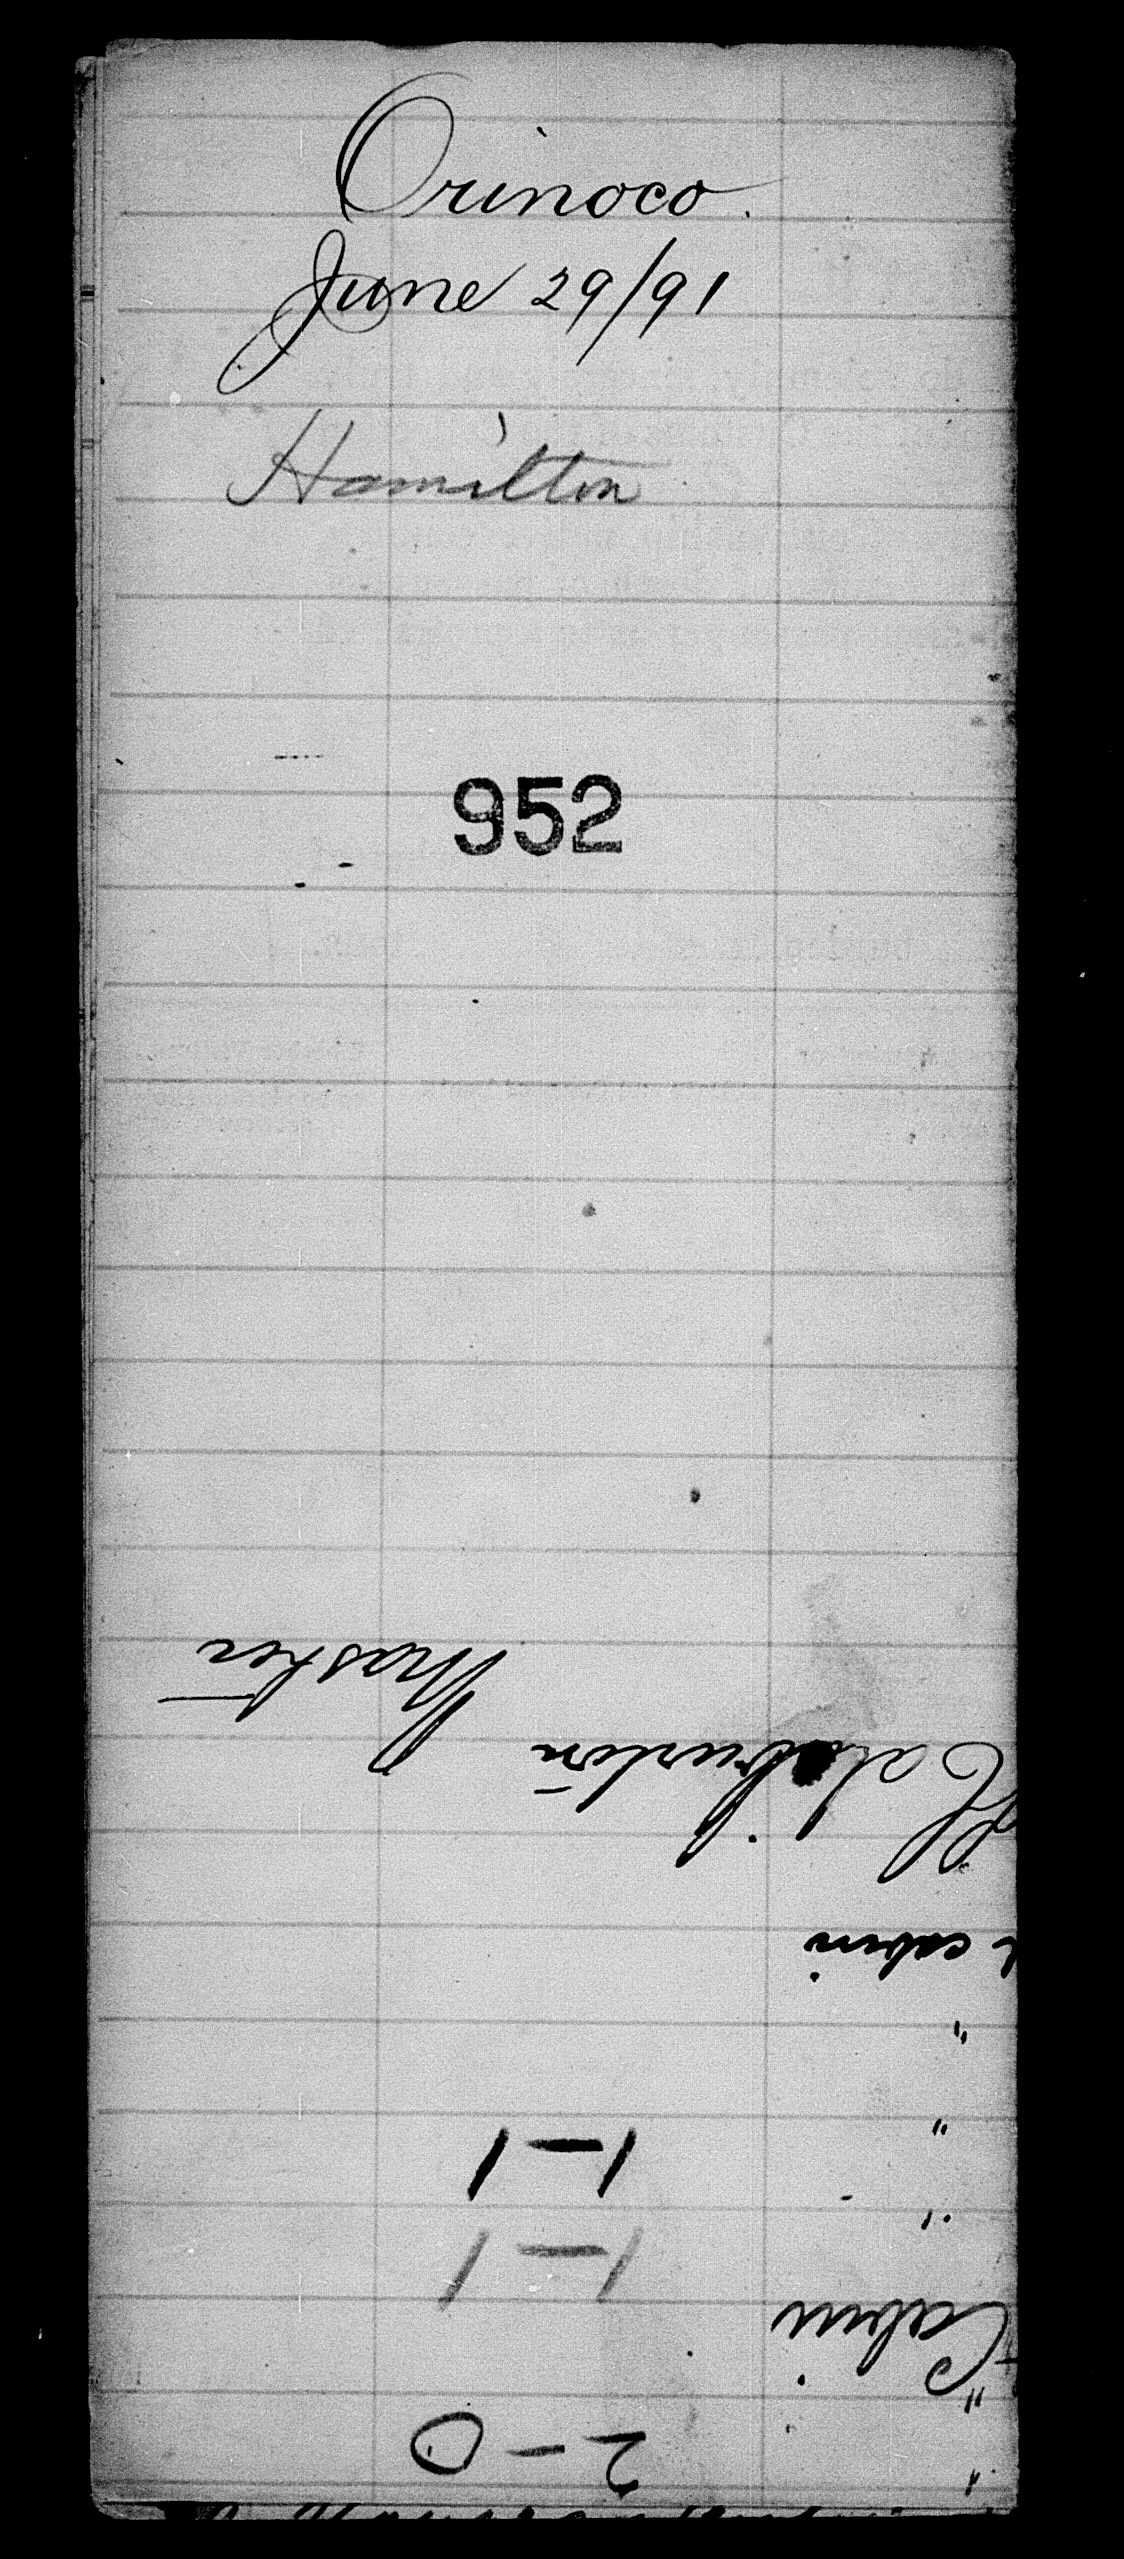 Orinoco.
June 29/91
Hamilton
952
2-0
"
"
Cabin
1-1
"
1-1
"
"
cabin
Master